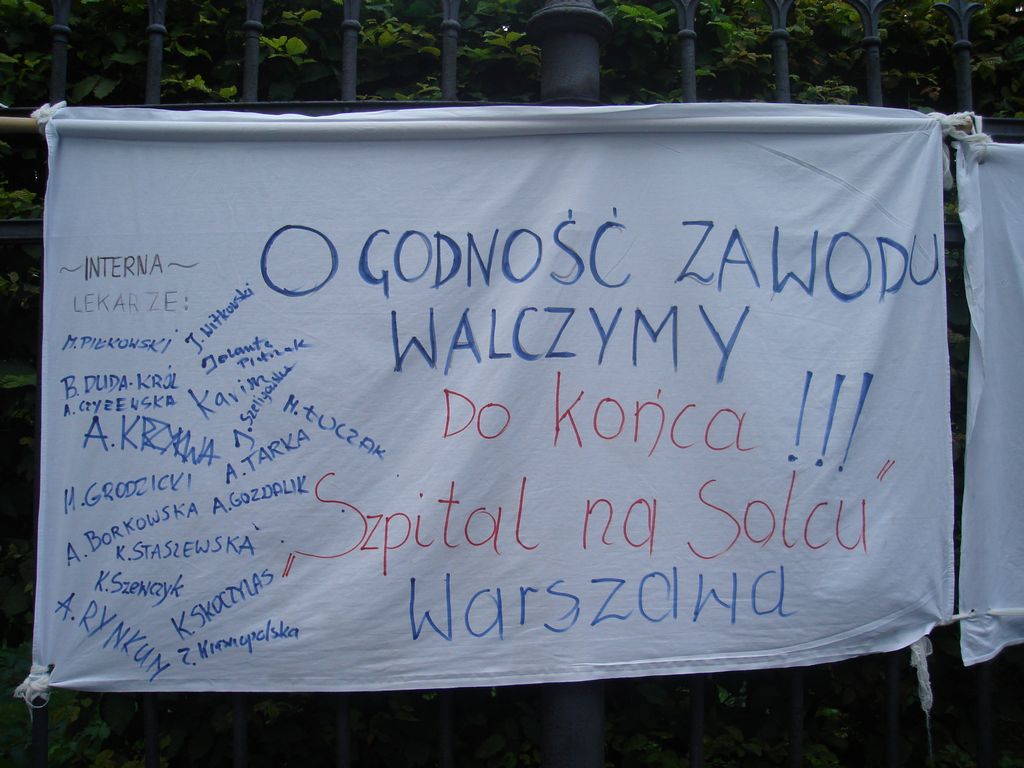 O GODNOŚĆ ZAWODU
WALCZYMY
DO KOŃCA !!!
„Szpital na Solcu"
Warszawa
~INTERNA~
LEKARZE:
M. PIEŁKOWSKI
J. Witkowski
Jolanta
B. DUDA-KRÓL
A. CZYŻEWSKA
A. KRZAWA
M. ŁUCZAK
A. TARKA
M. GRODZICKI
A. GOZDALIK
A. BORKOWSKA
K. STASZEWSKA
K. Szewczyk
K. SKOCZYLAS
A. RYNKUN